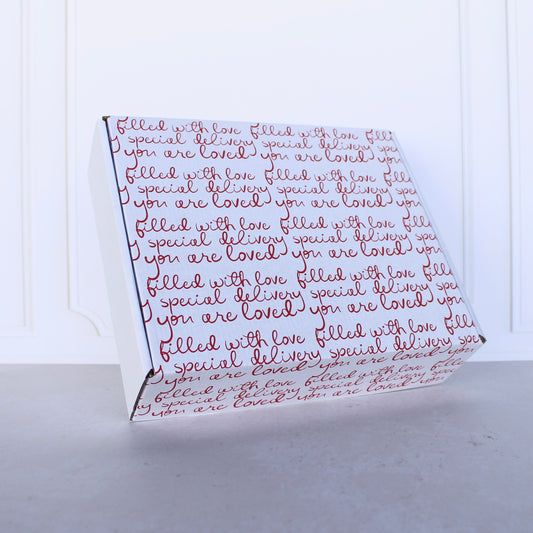 filled with love filled with love filled
y special delivery special delivery special
you are loved you are loved you
filled with love filled with love filled
y special delivery special delivery special
you are loved you are loved you
filled with love filled with love filled
y special delivery special delivery special
you are loved you are loved you
filled with love filled with love filled
y special delivery special delivery special
you are loved you are loved you
filled with love filled with love filled
y special delivery special delivery special
you are loved you are loved you
filled with love filled with love filled
y special delivery special delivery special
you are loved you are loved you